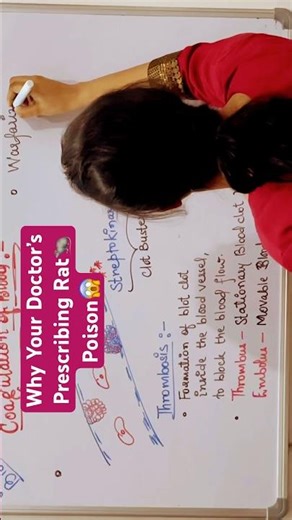 Why Your Doctor's
Prescribing Rat🐀
Poison😱
Coagulation of Blood :-
• Warfari
Streptokinas
Clot Buste
Thrombosis :-
• Formation of blot clot
inside the blood vessel,
to block the blood flow.
Thrombus – Stationary Blood clot
Embolus – Movable Blo